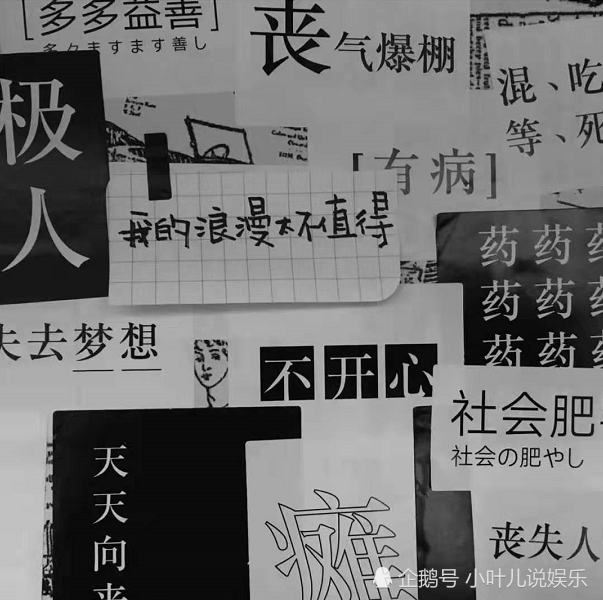 [多多益善]
多々ますます善し
丧气爆棚
混、吃
等、死
极
人
[有病]
我的浪漫太不值得
药药
药药
药药
失去梦想
不开心
社会肥
社会の肥やし
天
天
向
丧
瘫
丧失人
企鹅号 小叶儿说娱乐